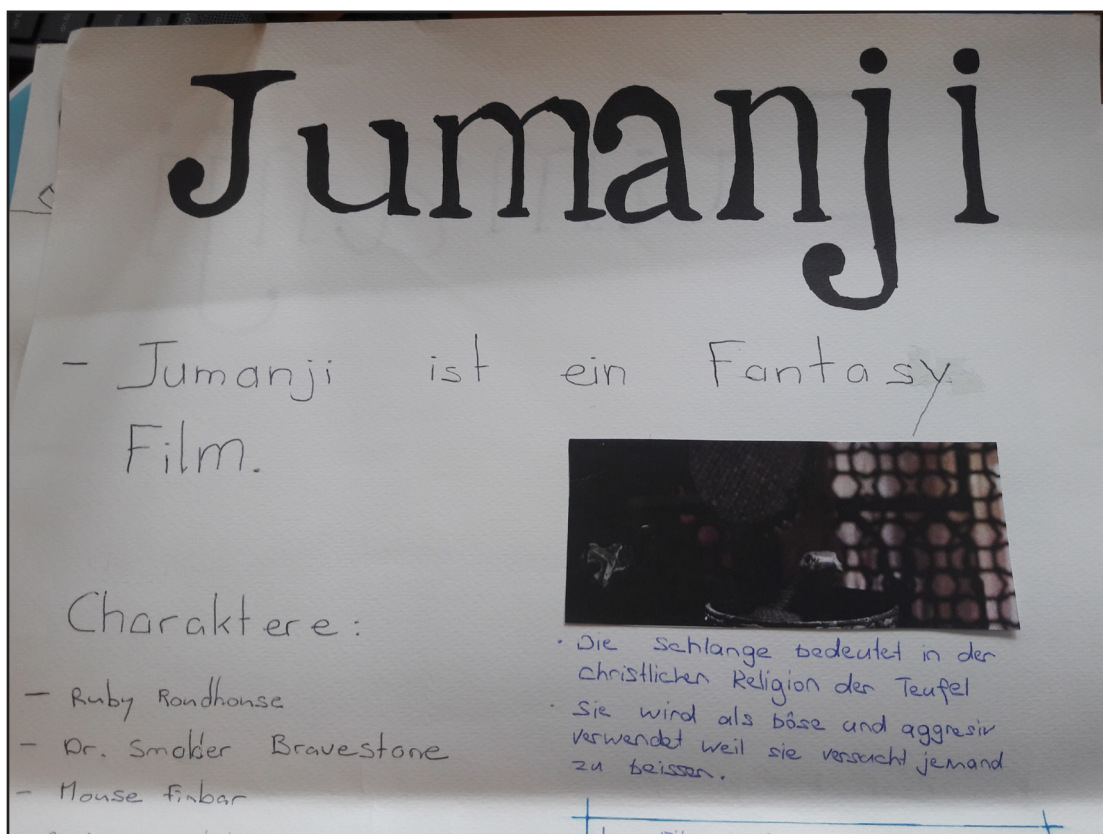 Jumanji
- Jumanji ist ein Fantasy
Film.
Charaktere:
- Ruby Roundhouse
- Dr. Smolder Bravestone
- Mouse Finbar
· Die Schlange bedeutet in der
christlichen Religion der Teufel
· Sie wird als böse und aggresiv
verwendet weil sie versucht jemand
zu beissen.